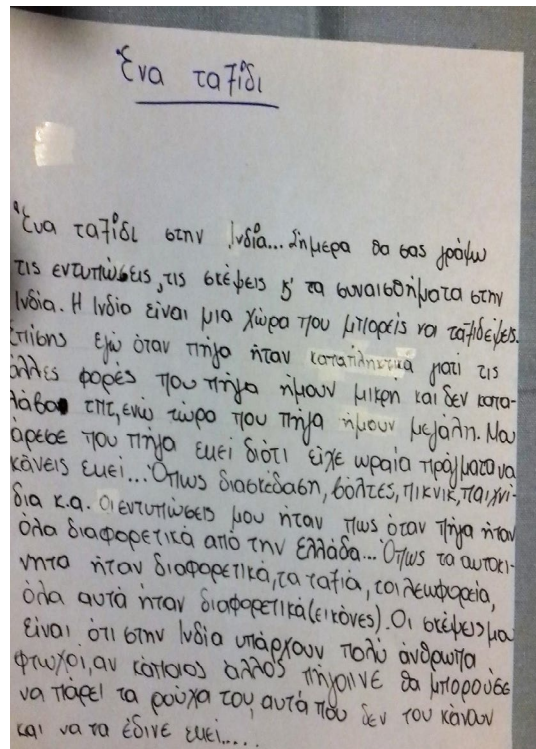 Ένα ταξίδι
Ένα ταξίδι στην Ινδία... Σήμερα θα σας γράψω
τις εντυπώσεις, τις σκέψεις κ' τα συναισθήματα στην
Ινδία. Η Ινδία είναι μια χώρα που μπορείς να ταξιδέψεις.
Επίσης εγώ όταν πήγα ήταν καταπληκτικά γιατί τις
άλλες φορές που πήγα ήμουν μικρη και δεν κατα-
λάβα τπτ, ενώ τώρα που πήγα ήμουν μεγάλη. Μου
άρεσε που πήγα εκεί διότι είχε ωραία πράγματα να
κάνεις εκεί... Όπως διασκέδαση, βόλτες, πικνικ, παιχνί-
δια κ.α. Οι εντυπώσεις μου ήταν πως όταν πήγα ήταν
όλα διαφορετικά από την Ελλάδα... Όπως τα αυτοκί-
νητα ήταν διαφορετικά, τα ταξιά, τα λεωφορεία,
όλα αυτά ήταν διαφορετικά (εικόνες). Οι σκέψεις μου
είναι ότι στην Ινδία υπάρχουν πολύ άνθρωποι
φτωχοί, αν κάποιος άλλος πήγαινε θα μπορούσε
να πάρει τα ρούχα του, αυτά που δεν του κάνουν
και να τα έδινε εκεί....